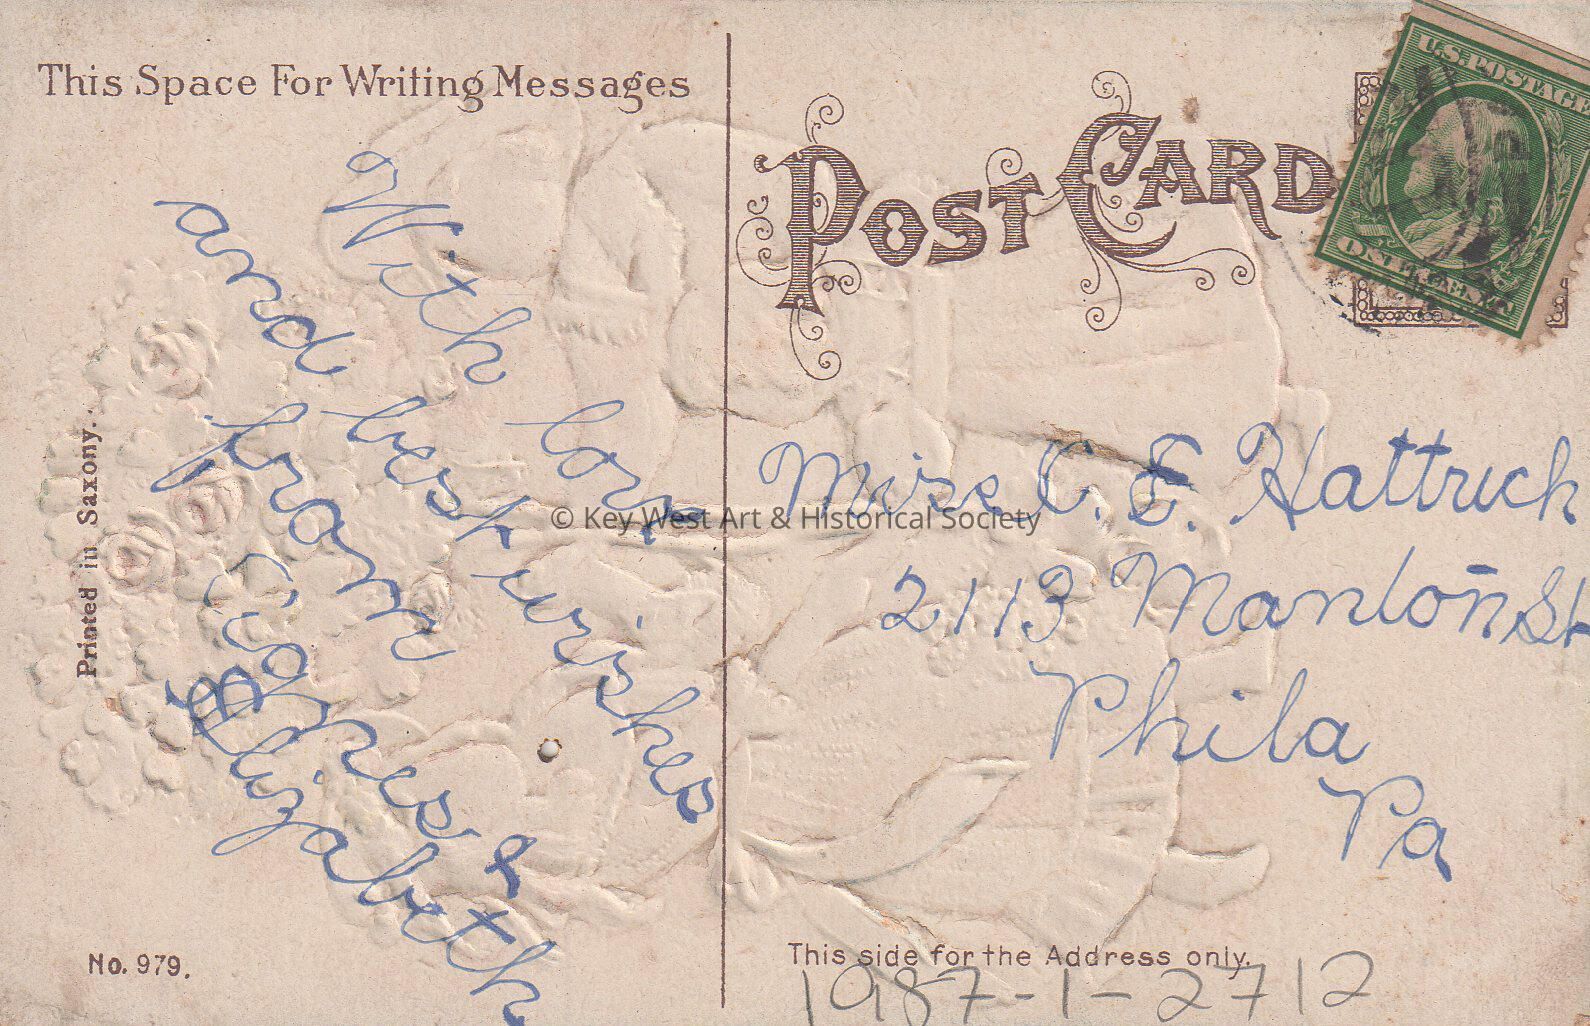 This Space For Writing Messages
POST CARD
U.S. POSTAGE
ONE CENT
With love
and best wishes
from
Agnes &
Elizabeth
Printed in Saxony.
No. 979.
Miss C. E. Hattrick
2113 Manton St
Phila
Pa
This side for the Address only.
1987-1-2712
© Key West Art & Historical Society